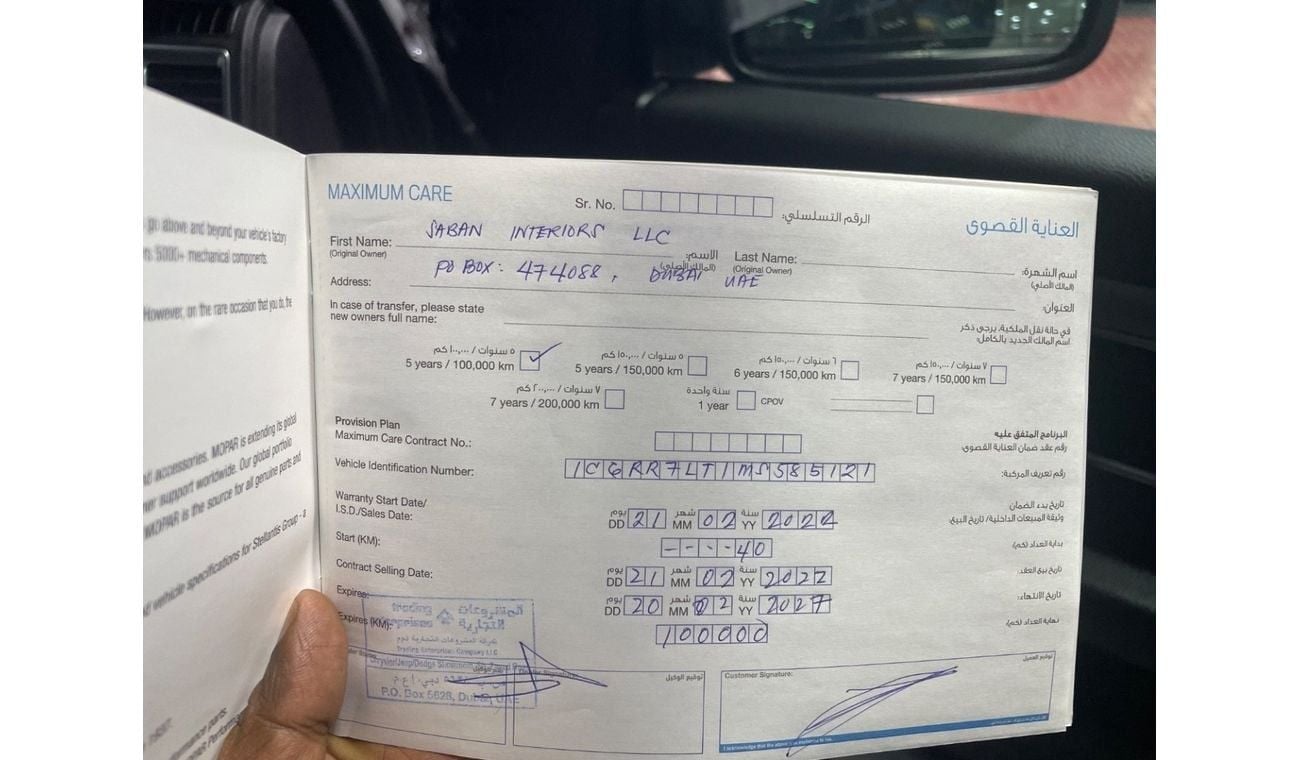 go above and beyond your vehicle's factory
5000+ mechanical components.
However, on the rare occasion that you do, the
accessories. MOPAR is extending its global
support worldwide. Our global portfolio
MOPAR is the source for all genuine parts and
vehicle specifications for Stellantis Group - a
performance parts.
MAXIMUM CARE
Sr. No. الرقم التسلسلي:
العناية القصوى
SABAN INTERIORS LLC
First Name: الاسم: Last Name: اسم الشهرة:
(Original Owner) (المالك الأصلي) (Original Owner) (المالك الأصلي)
PO BOX: 474088, DUBAI UAE
Address: العنوان:
In case of transfer, please state في حالة نقل الملكية، يرجى ذكر
new owners full name: اسم المالك الجديد بالكامل:
٥ سنوات / ١٠٠,٠٠٠ كم ٥ سنوات / ١٥٠,٠٠٠ كم ٦ سنوات / ١٥٠,٠٠٠ كم ٧ سنوات / ١٥٠,٠٠٠ كم
5 years / 100,000 km ✓ 5 years / 150,000 km 6 years / 150,000 km 7 years / 150,000 km
٧ سنوات / ٢٠٠,٠٠٠ كم سنة واحدة
7 years / 200,000 km 1 year CPOV
Provision Plan البرنامج المتفق عليه
Maximum Care Contract No.: رقم عقد ضمان العناية القصوى:
Vehicle Identification Number: 1C6RR7LT1MS585121 رقم تعريف المركبة:
Warranty Start Date/ تاريخ بدء الضمان
I.S.D./Sales Date: يوم DD 21 شهر MM 02 سنة YY 2022 وثيقة المبيعات الداخلية/ تاريخ البيع:
Start (KM): ----40 بداية العداد (كم):
Contract Selling Date: يوم DD 21 شهر MM 02 سنة YY 2022 تاريخ بيع العقد:
Expires: يوم DD 20 شهر MM 02 سنة YY 2027 تاريخ الانتهاء:
Expires (KM): 100000 نهاية العداد (كم):
trading enterprises
شركة المشروعات التجارية ذ.م.م
Trading Enterprises Company LLC
Chrysler/Jeep/Dodge
P.O. Box 5628, Dubai, UAE
توقيع الوكيل
Customer Signature: توقيع العميل
I acknowledge that the above